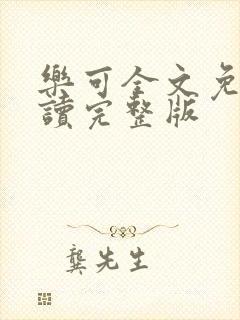 樂可全文免
讀完整版
龔先生